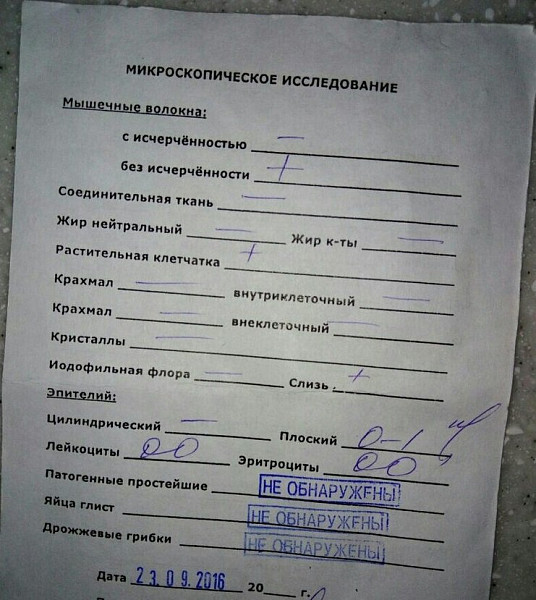 МИКРОСКОПИЧЕСКОЕ ИССЛЕДОВАНИЕ
Мышечные волокна:
с исчерчённостью —
без исчерчённости +
Соединительная ткань —
Жир нейтральный — Жир к-ты —
Растительная клетчатка +
Крахмал — внутриклеточный —
Крахмал — внеклеточный —
Кристаллы —
Иодофильная флора — Слизь . +
Эпителий:
Цилиндрический — Плоский 0-1
Лейкоциты 00 Эритроциты 00
Патогенные простейшие НЕ ОБНАРУЖЕНЫ
Яйца глист НЕ ОБНАРУЖЕНЫ
Дрожжевые грибки НЕ ОБНАРУЖЕНЫ
Дата 23.09.2016 20 г.